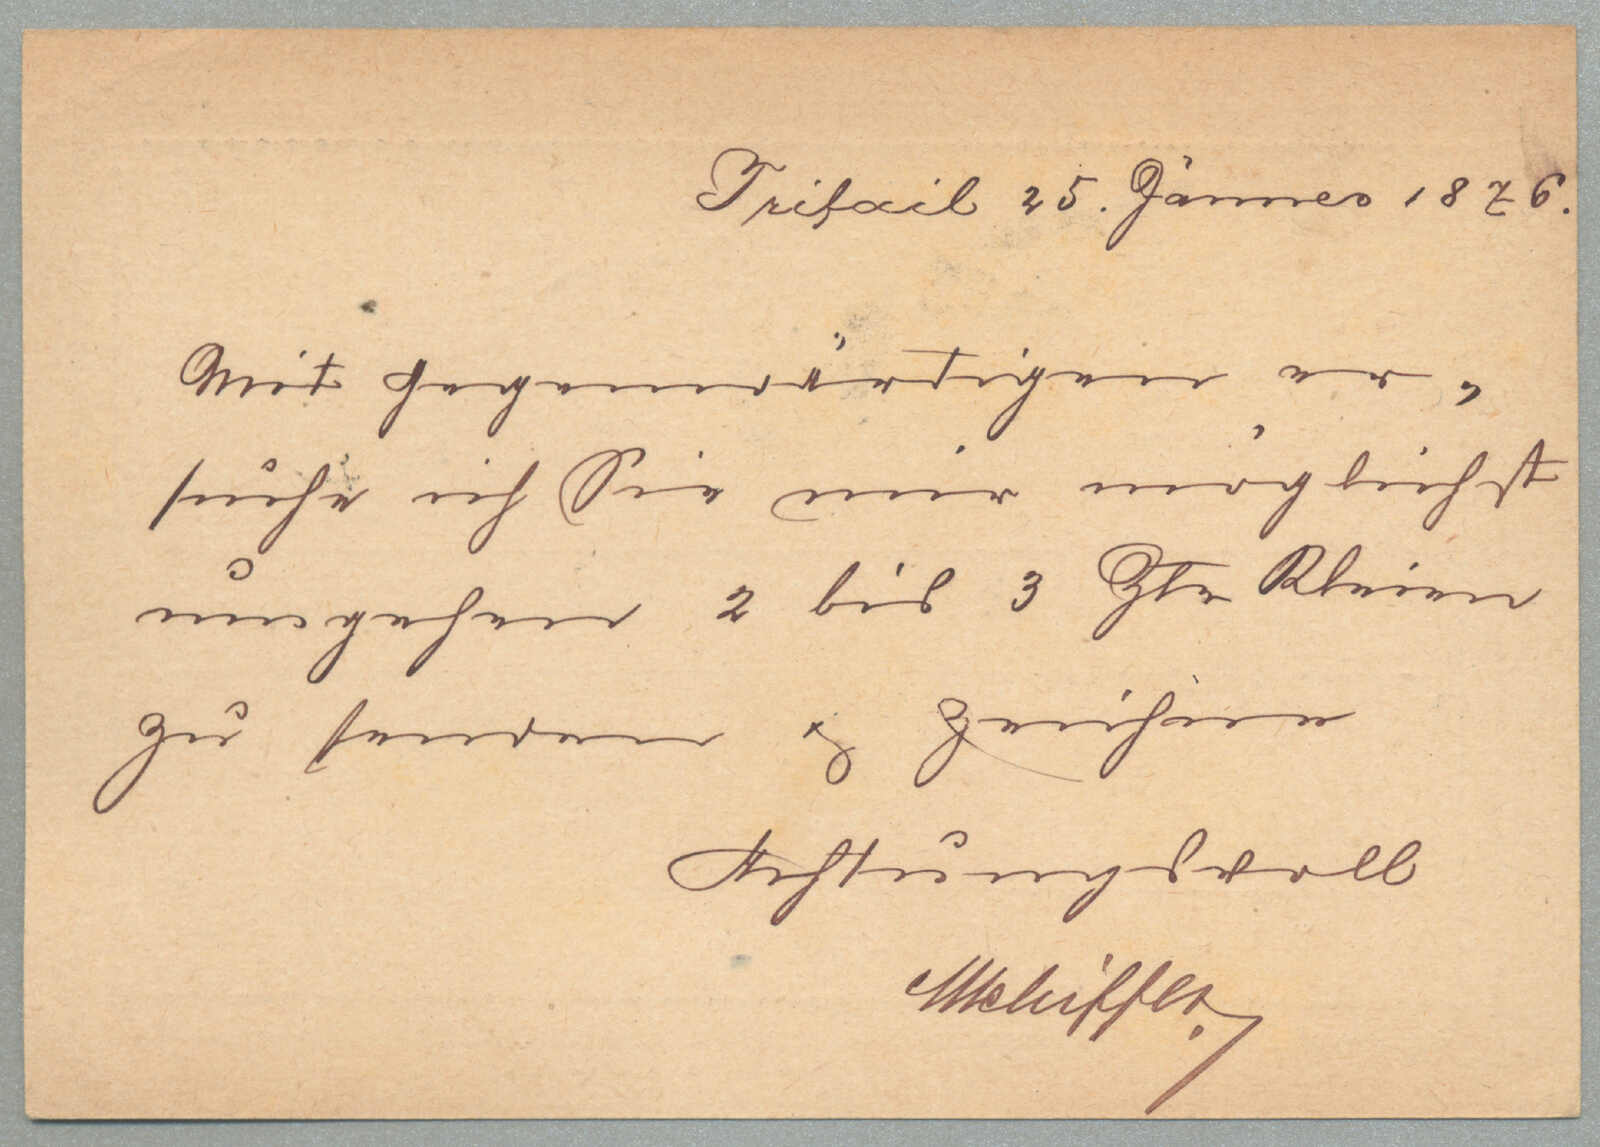 Trifail 25. Jänner 1876.
Mit Gegenwärtigen er,
suche ich Sie mir möglichst
umgehen 2 bis 3 Ztr Kleien
zu senden & zeichne
Achtungsvoll